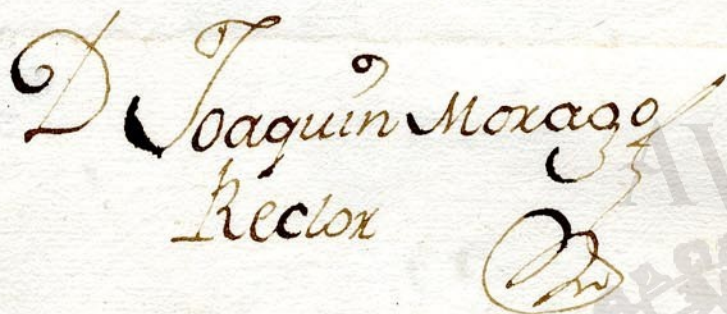 D Joaquin Morago
Rector